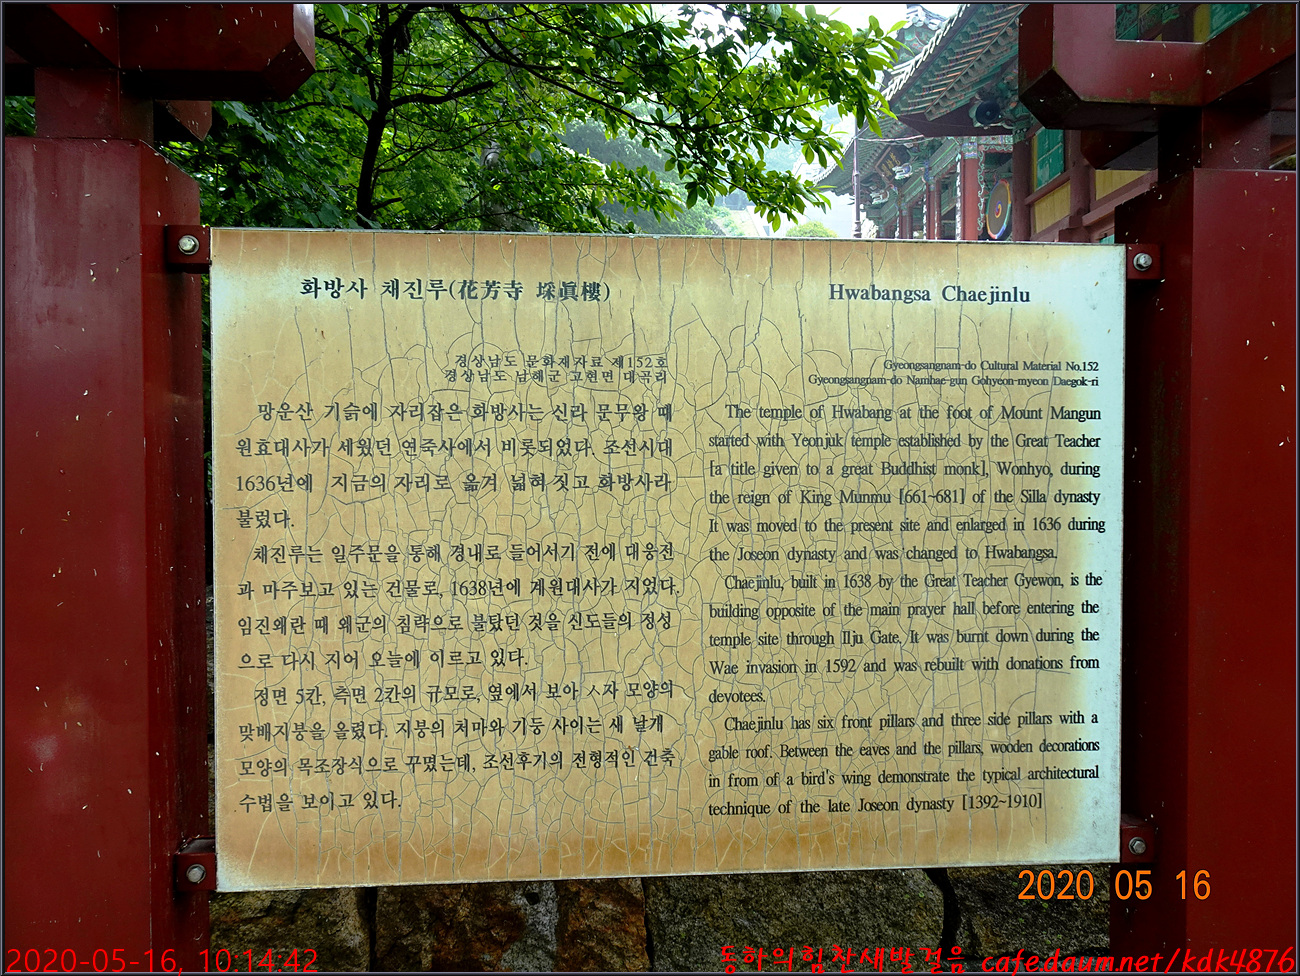 화방사 채진루(花芳寺 埰眞樓)
경상남도 문화재자료 제152호
경상남도 남해군 고현면 대곡리
망운산 기슭에 자리잡은 화방사는 신라 문무왕 때
원효대사가 세웠던 연죽사에서 비롯되었다. 조선시대
1636년에 지금의 자리로 옮겨 넓혀 짓고 화방사라
불렀다.
채진루는 일주문을 통해 경내로 들어서기 전에 대웅전
과 마주보고 있는 건물로, 1638년에 계원대사가 지었다.
임진왜란 때 왜군의 침략으로 불탔던 것을 신도들의 정성
으로 다시 지어 오늘에 이르고 있다.
정면 5칸, 측면 2칸의 규모로, 옆에서 보아 ㅅ자 모양의
맞배지붕을 올렸다. 지붕의 처마와 기둥 사이는 새 날개
모양의 목조장식으로 꾸몄는데, 조선후기의 전형적인 건축
수법을 보이고 있다.
Hwabangsa Chaejinlu
Gyeongsangnam-do Cultural Material No.152
Gyeongsangnam-do Namhae-gun Gohyeon-myeon Daegok-ri
The temple of Hwabang at the foot of Mount Mangun
started with Yeonjuk temple established by the Great Teacher
[a title given to a great Buddhist monk], Wonhyo, during
the reign of King Munmu [661~681] of the Silla dynasty
It was moved to the present site and enlarged in 1636 during
the Joseon dynasty and was changed to Hwabangsa.
Chaejinlu, built in 1638 by the Great Teacher Gyewon, is the
building opposite of the main prayer hall before entering the
temple site through Ilju Gate. It was burnt down during the
Wae invasion in 1592 and was rebuilt with donations from
devotees.
Chaejinlu has six front pillars and three side pillars with a
gable roof. Between the eaves and the pillars, wooden decorations
in from of a bird's wing demonstrate the typical architectural
technique of the late Joseon dynasty [1392~1910]
2020 05 16
2020-05-16, 10:14:42
동하의힘찬새발걸음 cafedaum.net/kdk4876